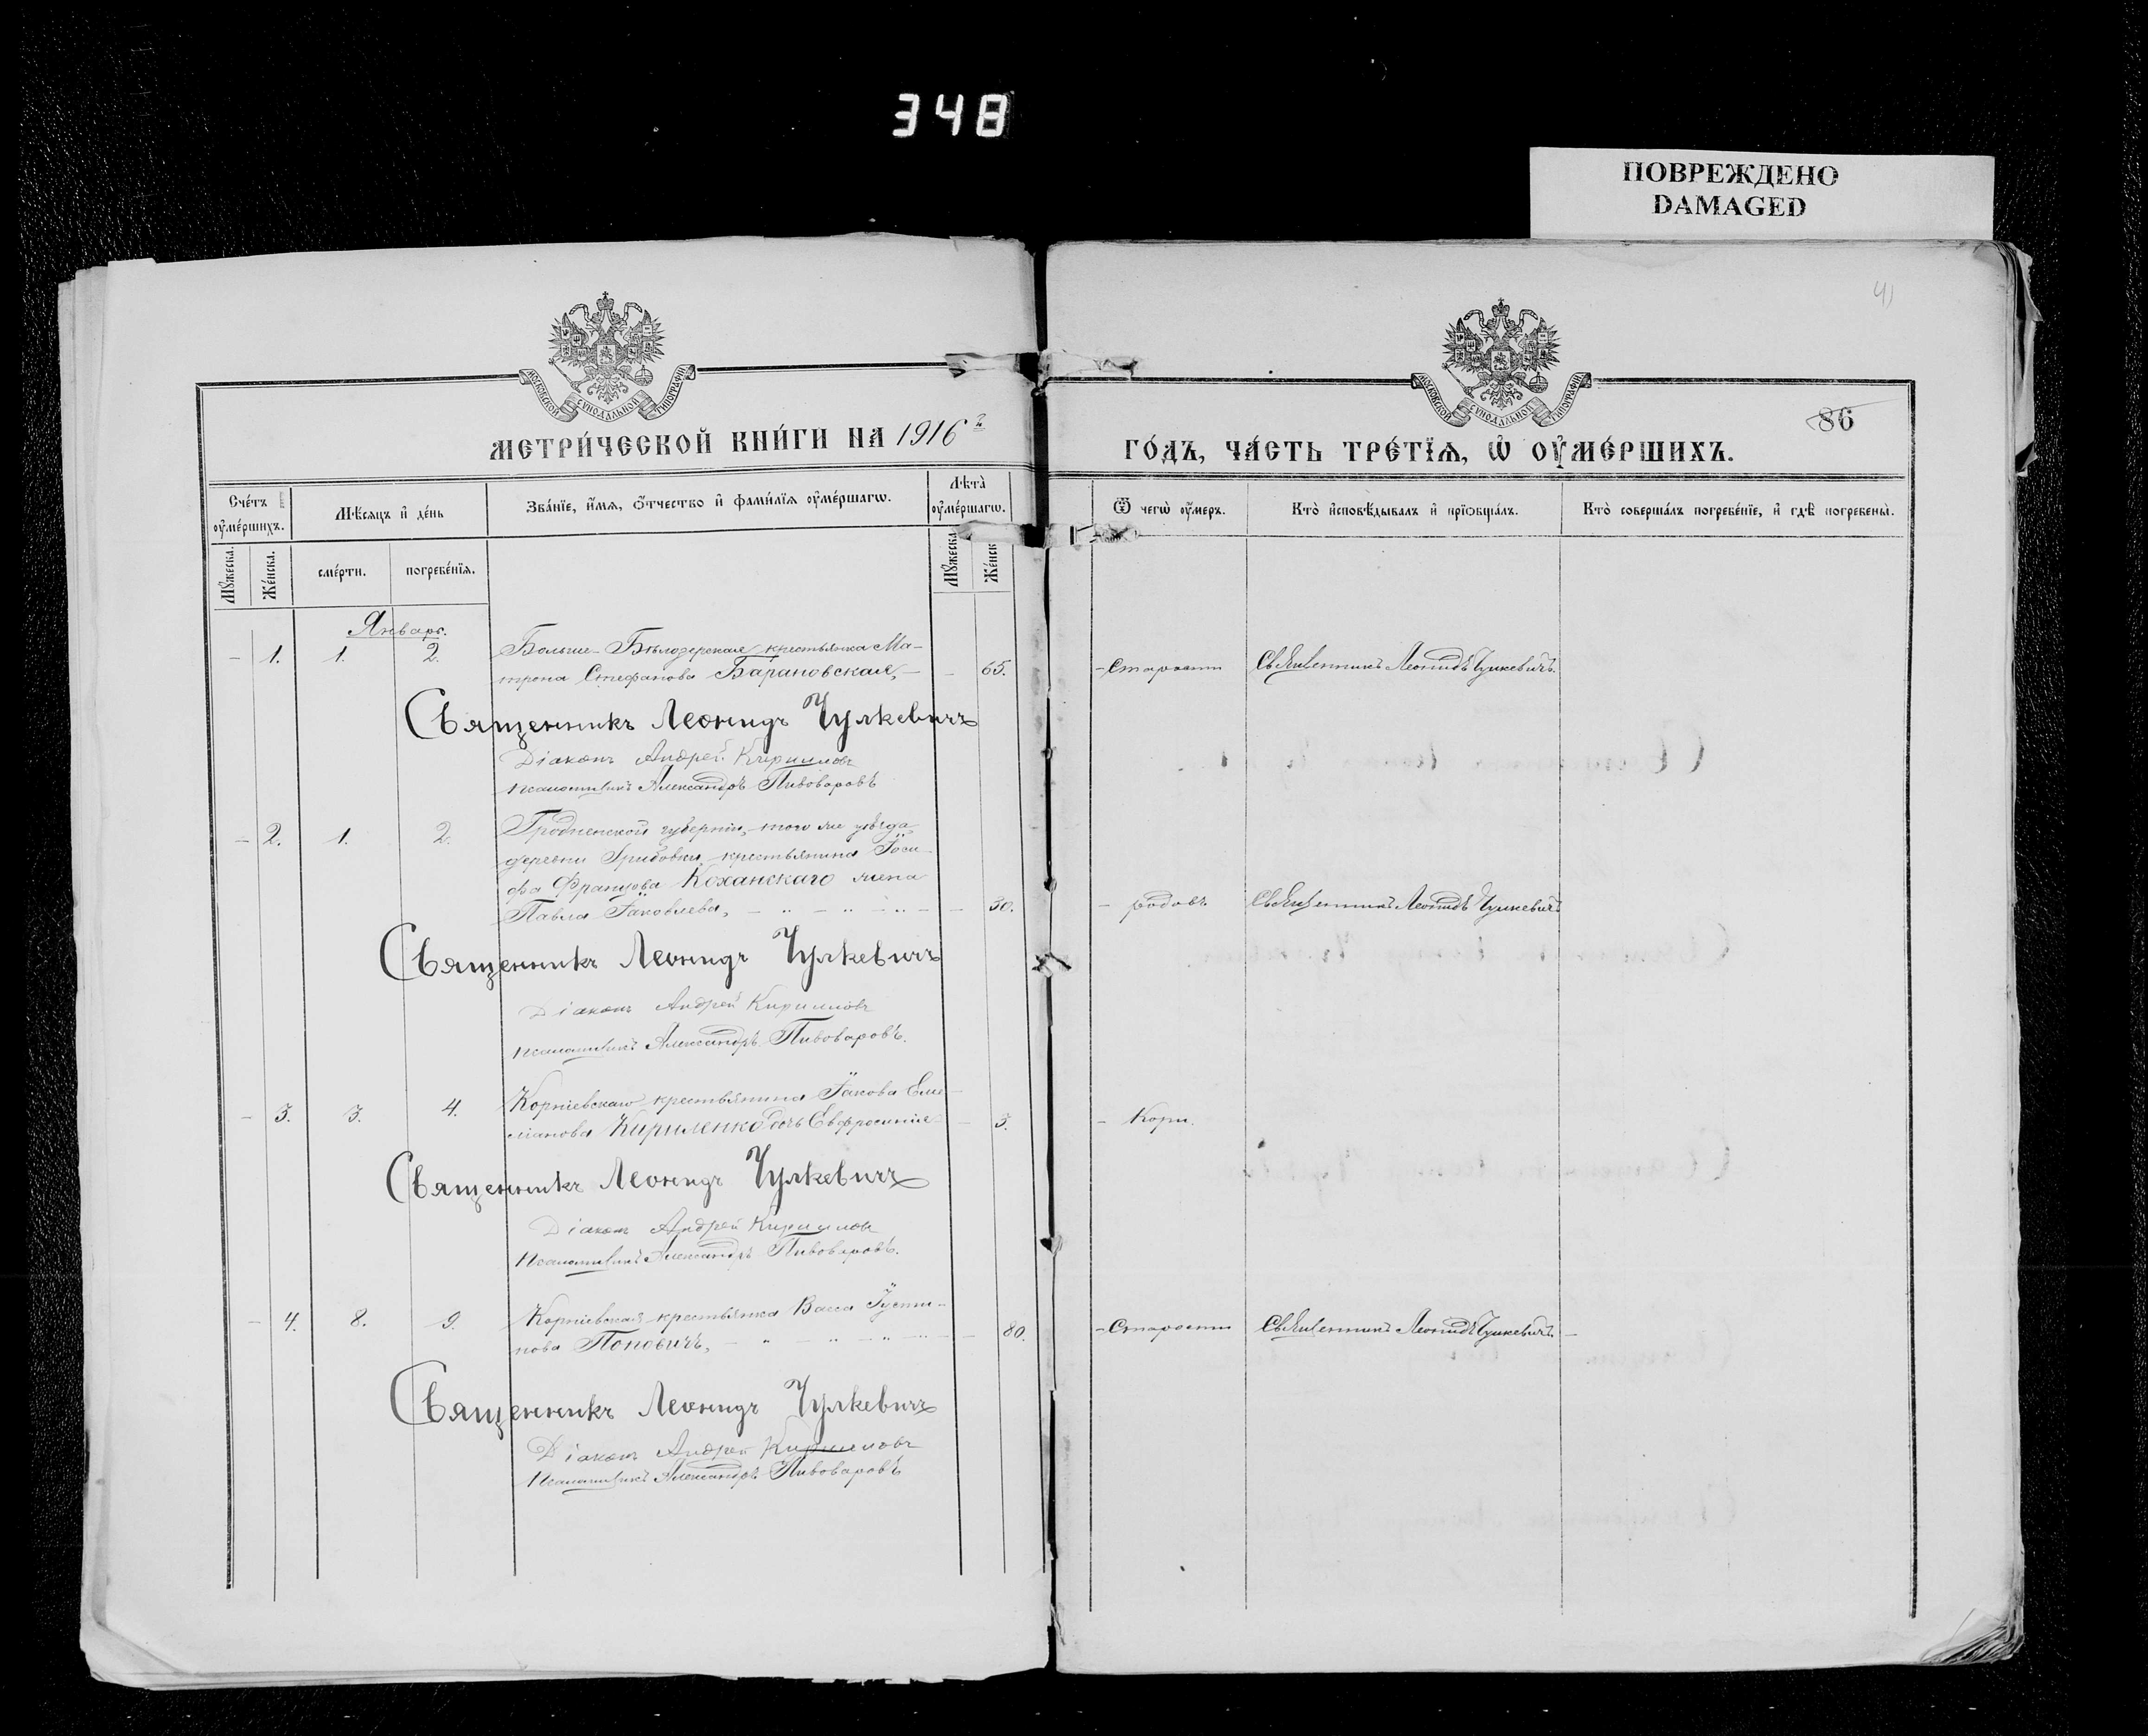 348
ПОВРЕЖДЕНО
DAMAGED
41
МОСКОВСКОЙ СУНОДАЛЬНОЙ ТИПОГРАФІИ
МОСКОВСКОЙ СУНОДАЛЬНОЙ ТИПОГРАФІИ
86
МЕТРИ́ЧЕСКОЙ КНИ́ГИ НА 1916 г
ГО́ДЪ, ЧА́СТЬ ТРЕ́ТЇѦ, Ѡ҆ ОУ҆МЕ́РШИХЪ.
Сче́тъ оу҆ме́ршихъ.
Мѣ́сяцъ и҆ де́нь
Зва́нїе, и҆́мѧ, ѻ҆́тчество и҆ фами́лїѧ оу҆ме́ршагѡ.
Лѣ̀та оу҆ме́ршагѡ.
Ѿ чегѡ̀ оу҆́меръ.
Кто̀ и҆сповѣ́дывалъ и҆ прїѻбща́лъ.
Кто̀ соверша́лъ погребе́нїе, и҆ гдѣ̀ погребены̀.
Мꙋ́жеска.
Же́нска.
сме́рти.
погребе́нїѧ.
Мꙋ́жеска
Же́нск
Январь.
– 1. 1. 2. Больше-Бѣлозерская крестьянка Ма-
трона Стефанова Барановская, – – 65. – Старости Священникъ Леонидъ Чулкевичъ.
Священникъ Леонидъ Чулкевичъ
Діаконъ Андрей Кирилловъ
Псаломщикъ Александръ Пивоваровъ
– 2. 1. 2. Гродненской губерніи, того же уѣзда
деревни Грибовки, крестьянина Іоси-
фа Францова Коханскаго жена
Павла Іаковлева, – 30. – родовъ Священникъ Леонидъ Чулкевичъ
Священникъ Леонидъ Чулкевичъ
Діаконъ Андрей Кирилловъ
Псаломщикъ Александръ Пивоваровъ.
– 3. 3. 4. Корніевскаго крестьянина Іакова Еме-
ліанова Кириленко дочь Евфросинія – 3. – Кори.
Священникъ Леонидъ Чулкевичъ
Діаконъ Андрей Кирилловъ
Псаломщикъ Александръ Пивоваровъ.
– 4. 8. 9. Корніевская крестьянка Васса Іусти-
нова Поповичъ, – 80. – Старости Священникъ Леонидъ Чулкевичъ –
Священникъ Леонидъ Чулкевичъ
Діаконъ Андрей Кирилловъ
Псаломщикъ Александръ Пивоваровъ